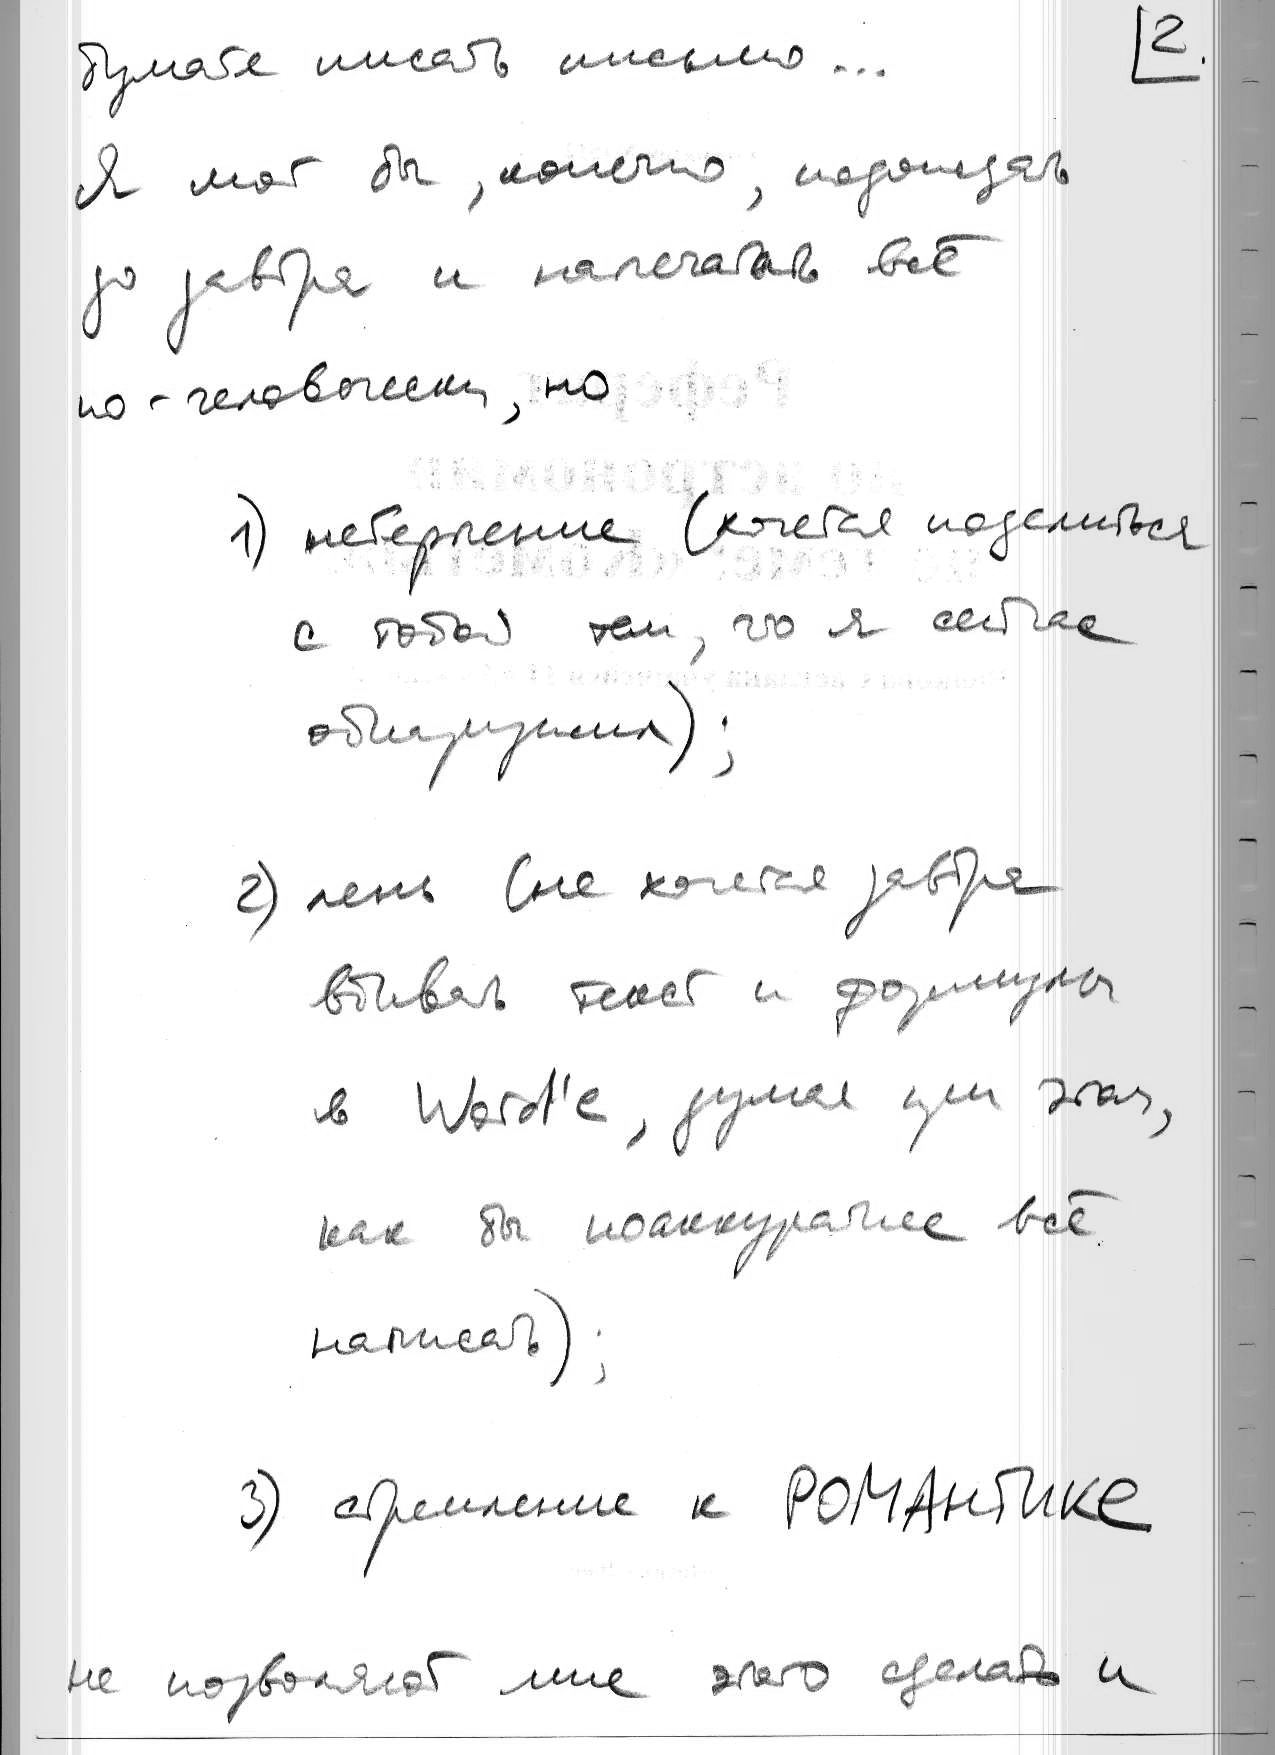 2.
бумаге писать письмо...
Я мог бы, конечно, подождать
до завтра и напечатать всё
по-человечески, но
1) нетерпение (хочется поделиться
с тобой тем, что я сейчас
обнаружил);
2) лень (не хочется завтра
вбивать текст и формулы
в Word'е, думая при этом,
как бы поаккуратнее всё
написать);
3) стремление к РОМАНТИКЕ
не позволяют мне этого сделать и